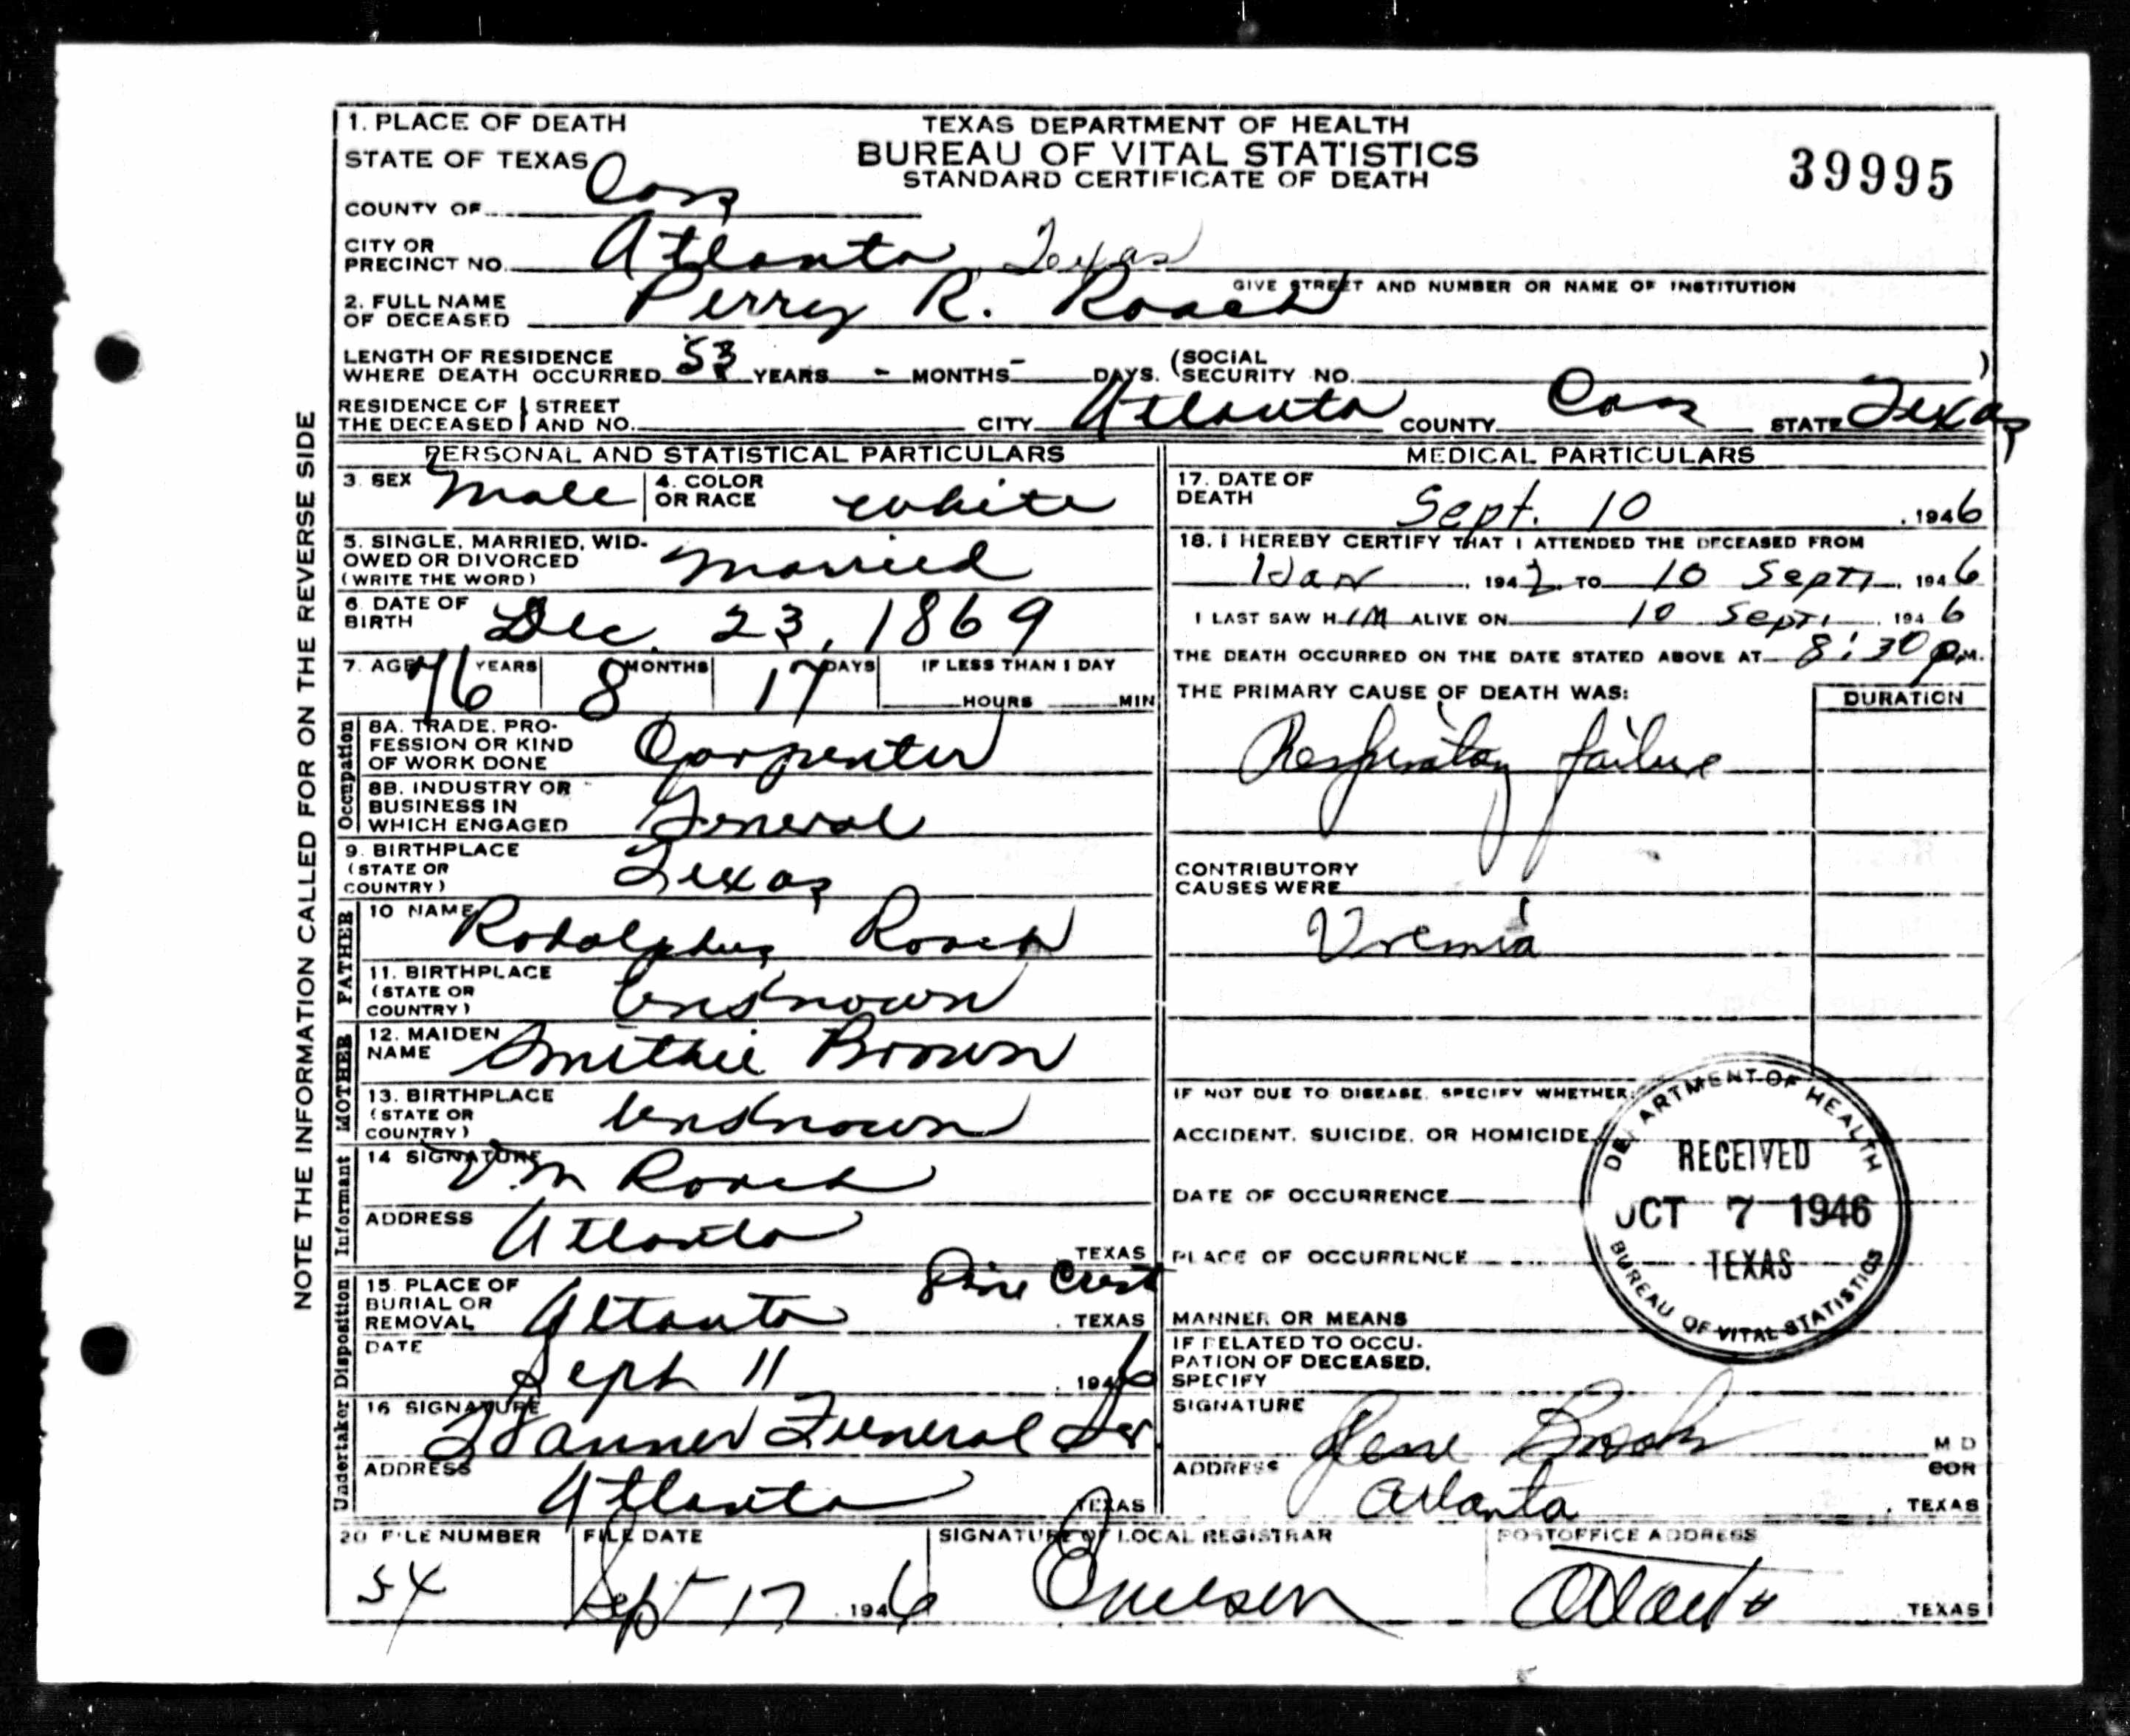 TEXAS DEPARTMENT OF HEALTH
BUREAU OF VITAL STATISTICS
STANDARD CERTIFICATE OF DEATH
39995
NOTE THE INFORMATION CALLED FOR ON THE REVERSE SIDE
1. PLACE OF DEATH
STATE OF TEXAS
COUNTY OF Cass
CITY OR PRECINCT NO. Atlanta Texas
GIVE STREET AND NUMBER OR NAME OF INSTITUTION
2. FULL NAME OF DECEASED Perry R. Roach
LENGTH OF RESIDENCE WHERE DEATH OCCURRED 53 YEARS - MONTHS - DAYS. (SOCIAL SECURITY NO. )
RESIDENCE OF THE DECEASED STREET AND NO. CITY Atlanta COUNTY Cass STATE Texas
PERSONAL AND STATISTICAL PARTICULARS
3. SEX Male 4. COLOR OR RACE white
5. SINGLE, MARRIED, WIDOWED OR DIVORCED (WRITE THE WORD) Married
6. DATE OF BIRTH Dec. 23, 1869
7. AGE 76 YEARS 8 MONTHS 17 DAYS IF LESS THAN 1 DAY HOURS MIN
Occupation
8A. TRADE, PROFESSION OR KIND OF WORK DONE Carpenter
8B. INDUSTRY OR BUSINESS IN WHICH ENGAGED General
9. BIRTHPLACE (STATE OR COUNTRY) Texas
FATHER
10 NAME Rodolphus Roach
11. BIRTHPLACE (STATE OR COUNTRY) Unknown
MOTHER
12. MAIDEN NAME Smithie Brown
13. BIRTHPLACE (STATE OR COUNTRY) Unknown
Informant
14 SIGNATURE V.M Roach
ADDRESS Atlanta TEXAS
Disposition
15. PLACE OF BURIAL OR REMOVAL Atlanta Pine Crest TEXAS
DATE Sept 11 1946
Undertaker
16 SIGNATURE Hanner Funeral Ser.
ADDRESS Atlanta TEXAS
MEDICAL PARTICULARS
17. DATE OF DEATH Sept. 10, 1946
18. I HEREBY CERTIFY THAT I ATTENDED THE DECEASED FROM
1942 TO 10 Sept, 1946
I LAST SAW HIM ALIVE ON 10 Sept, 1946
THE DEATH OCCURRED ON THE DATE STATED ABOVE AT 8:30 P.M.
THE PRIMARY CAUSE OF DEATH WAS: DURATION
Respiratory failure
CONTRIBUTORY CAUSES WERE
Uremia
IF NOT DUE TO DISEASE, SPECIFY WHETHER:
ACCIDENT, SUICIDE, OR HOMICIDE
DATE OF OCCURRENCE
PLACE OF OCCURRENCE
MANNER OR MEANS
IF RELATED TO OCCUPATION OF DECEASED, SPECIFY
DEPARTMENT OF HEALTH
RECEIVED
OCT 7 1946
TEXAS
BUREAU OF VITAL STATISTICS
SIGNATURE M D
ADDRESS Atlanta COR
TEXAS
20 FILE NUMBER 54
FILE DATE Sept 17 1946
SIGNATURE OF LOCAL REGISTRAR
POSTOFFICE ADDRESS Atlanta TEXAS